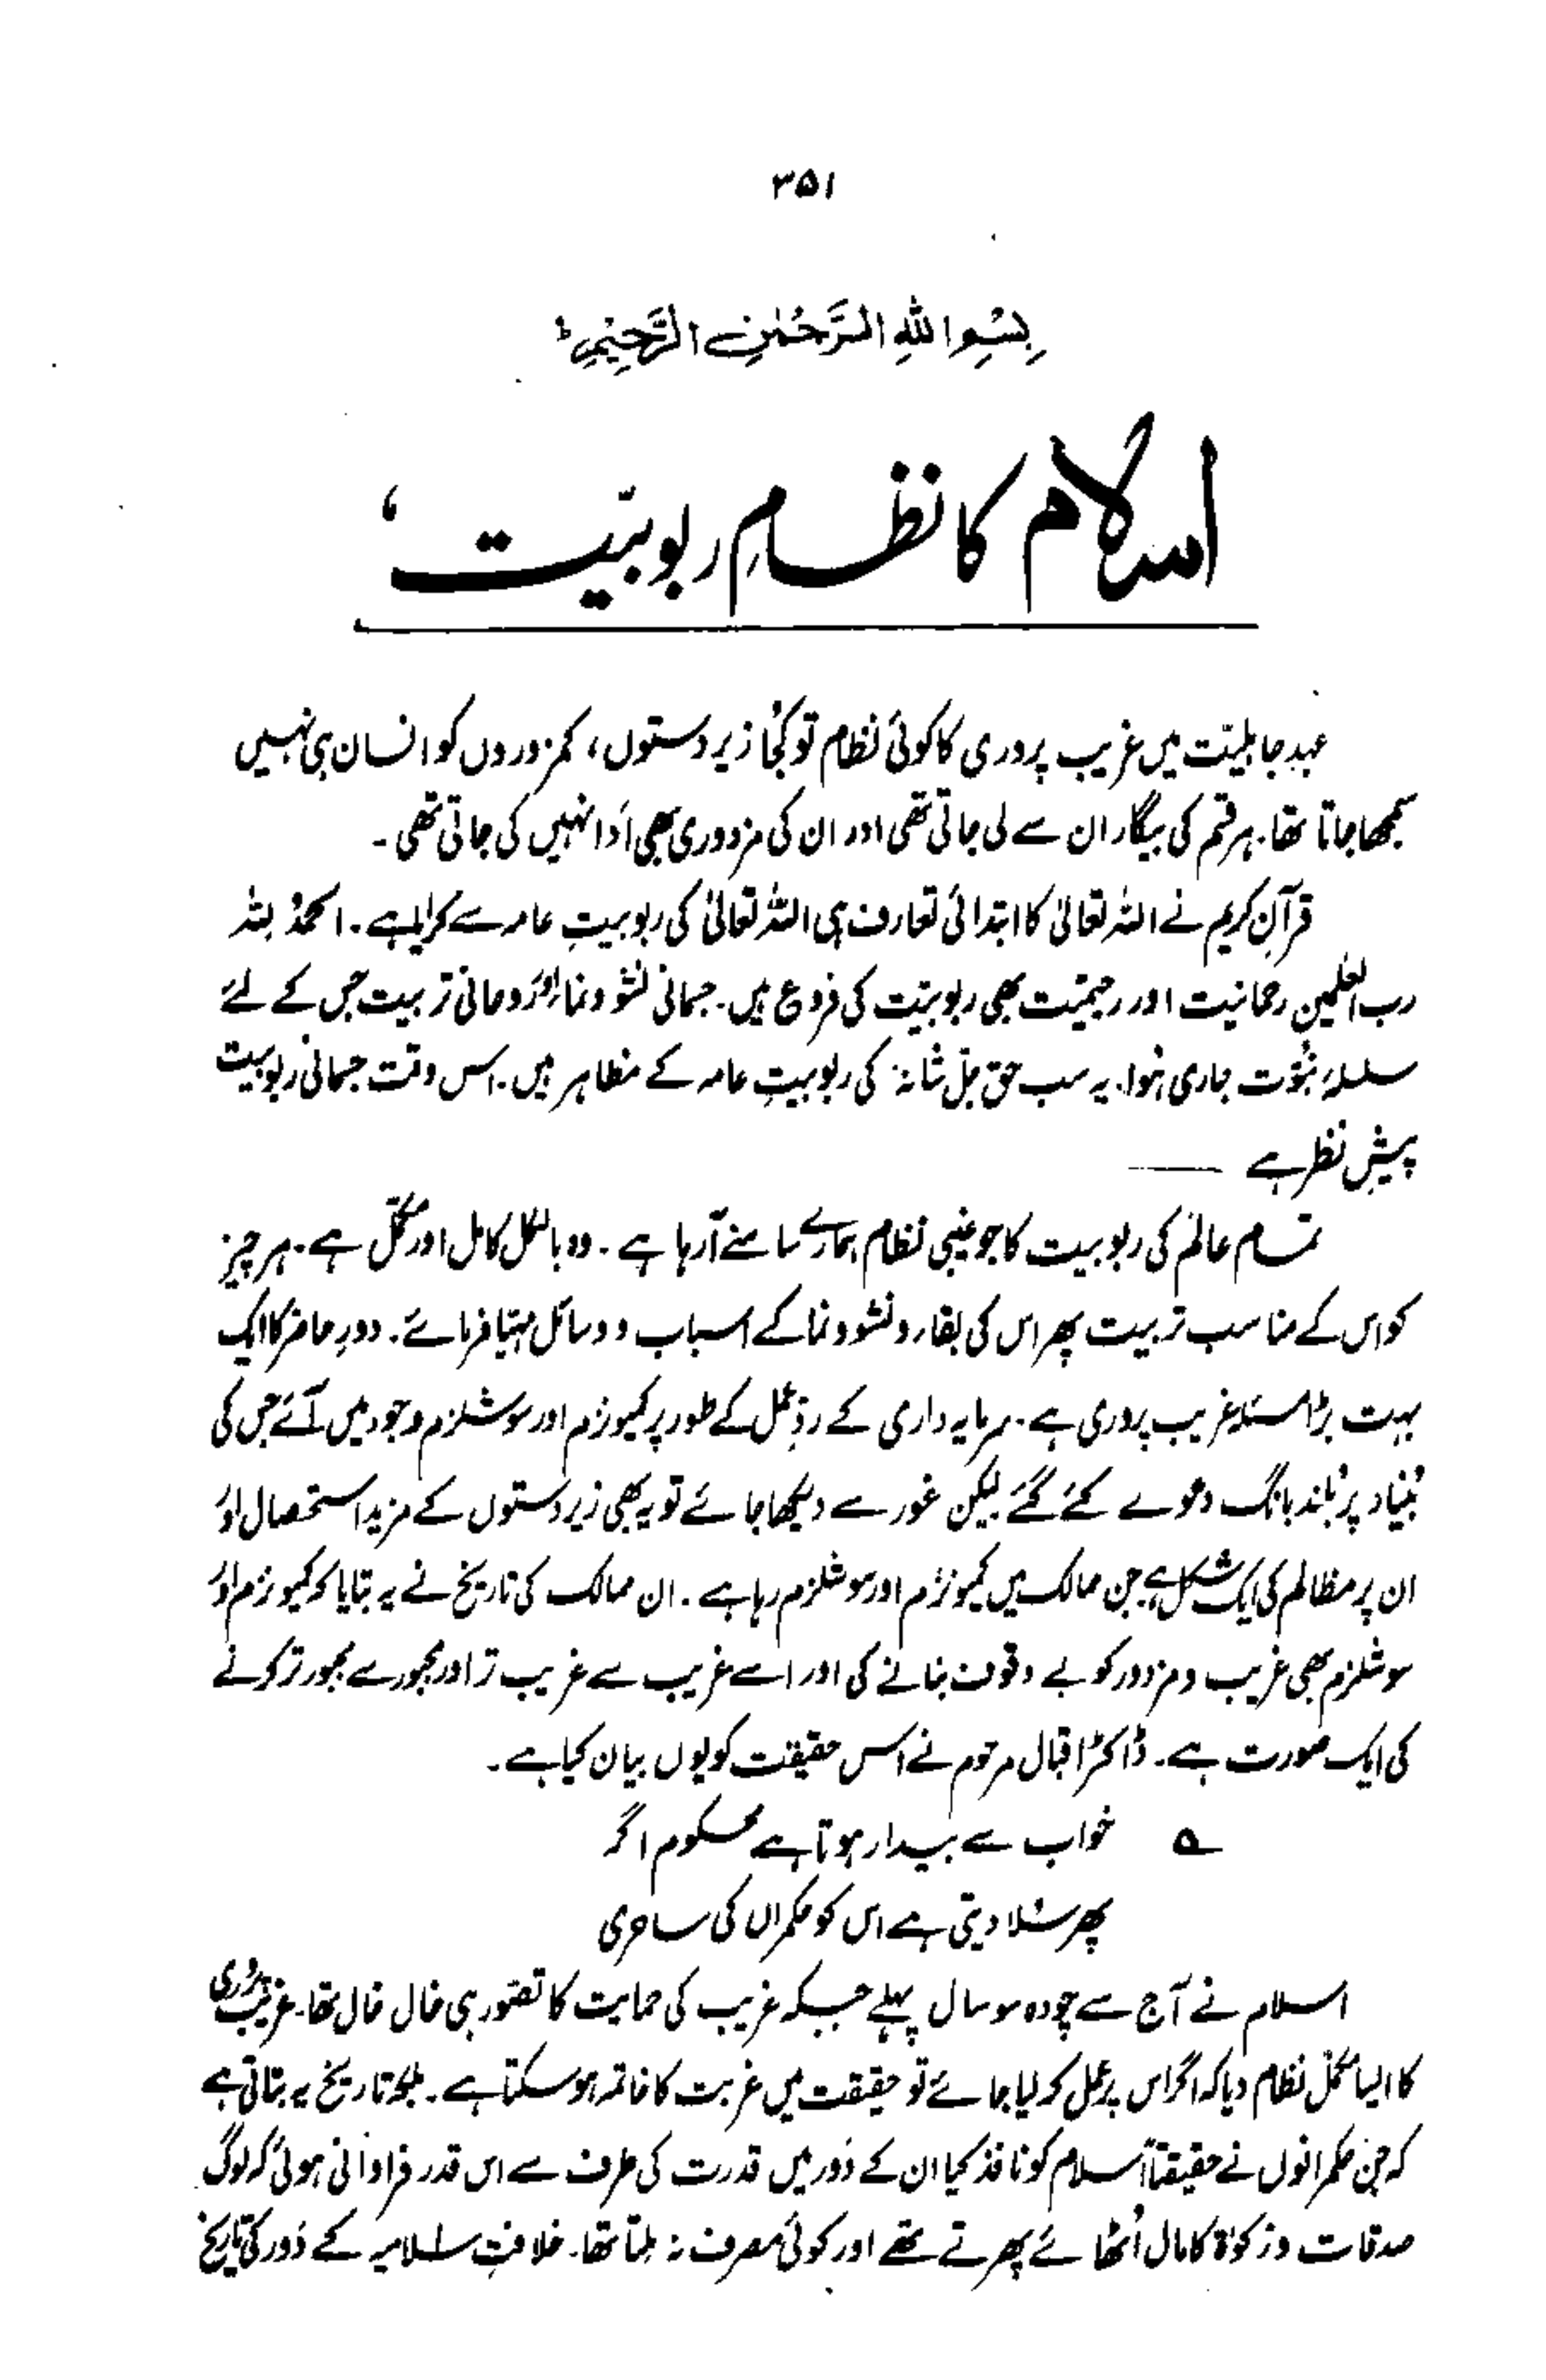 ۳۵۱
بِسْمِ اللهِ الرَّحْمٰنِ الرَّحِيْمِ ط
اسلام کا نظامِ ربوبیّت،
عہدِ جاہلیّت میں غریب پروری کا کوئی نظام تو کُجا زیر دستوں، کمزوروں کو انسان ہی نہیں
سمجھا جاتا تھا. ہر قسم کی بیگار ان سے لی جاتی تھی اور ان کی مزدوری بھی اَدا نہیں کی جاتی تھی ۔
قرآنِ کریم نے اللہ تعالیٰ کا ابتدائی تعارف ہی اللہ تعالیٰ کی ربوبیتِ عامہ سے کرایا ہے ۔ الحمدُ للہ
رب العٰلمین رحمانیت اور رحیمیّت بھی ربوبیّت کی فروع ہیں ۔ جسمانی نشو ونما اورُ روحانی تربیت جس کے لئے
سلسلۂ نبُوّت جاری ہُوا. یہ سب حق جلّ شانہٗ کی ربوبیتِ عامہ کے مظاہر ہیں ۔ اس وقت جسمانی ربوبیت
پیشِ نظر ہے ——
تمام عالَم کی ربوبیت کا جو غیبی نظام ہمارے سامنے آرہا ہے ۔ وہ بالکل کامل اور مکمّل ہے ۔ ہر چیز
کو اس کے مناسب تربیت پھر اس کی بقاء و نشو و نما کے اسباب و وسائل مہیّا فرمائے ۔ دورِ حاضر کا ایک
بہت بڑا مسئلہ غریب پروری ہے ۔ سرمایہ داری کے ردِّ عمل کے طور پر کمیوزم اور سوشلزم وجود میں آئے جس کی
بُنیاد پر بُلند بانگ دعوے کئے گئے لیکن غور سے دیکھا جائے تو یہ بھی زیر دستوں کے مزید استحصال اورُ
ان پر مظالم کی ایک شکل ہے جن ممالک میں کمیوزم اور سوشلزم رہا ہے ۔ ان ممالک کی تاریخ نے یہ بتایا کہ کمیوزم اورُ
سوشلزم بھی غریب و مزدور کو بے وقوف بنانے کی اور اسے غریب سے غریب تر اور مجبور سے مجبور تر کرنے
کی ایک صورت ہے ۔ ڈاکٹر اقبال مرحوم نے اس حقیقت کو یوں بیان کیا ہے ۔
؎ خواب سے بیدار ہوتا ہے محکوم اگر
پھر سُلا دیتی ہے اس کو حکمراں کی ساحری
اسلام نے آج سے چودہ سو سال پہلے جبکہ غریب کی حمایت کا تصوّر ہی خال خال تھا ۔ غریب پروری
کا ایسا مکمّل نظام دیا کہ اگر اس پر عمل کر لیا جائے تو حقیقت میں غربت کا خاتمہ ہو سکتا ہے ۔ بلکہ تاریخ یہ بتاتی ہے
کہ جن حکمرانوں نے حقیقتاً اسلام کو نافذ کیا ان کے دَور میں قدرت کی طرف سے اس قدر فراوانی ہوئی کہ لوگ
صدقات و زکوٰۃ کا مال اُٹھائے پھرتے تھے اور کوئی مصرف نہ ملتا تھا ۔ خلافتِ اسلامیہ کے دَور کی تاریخ